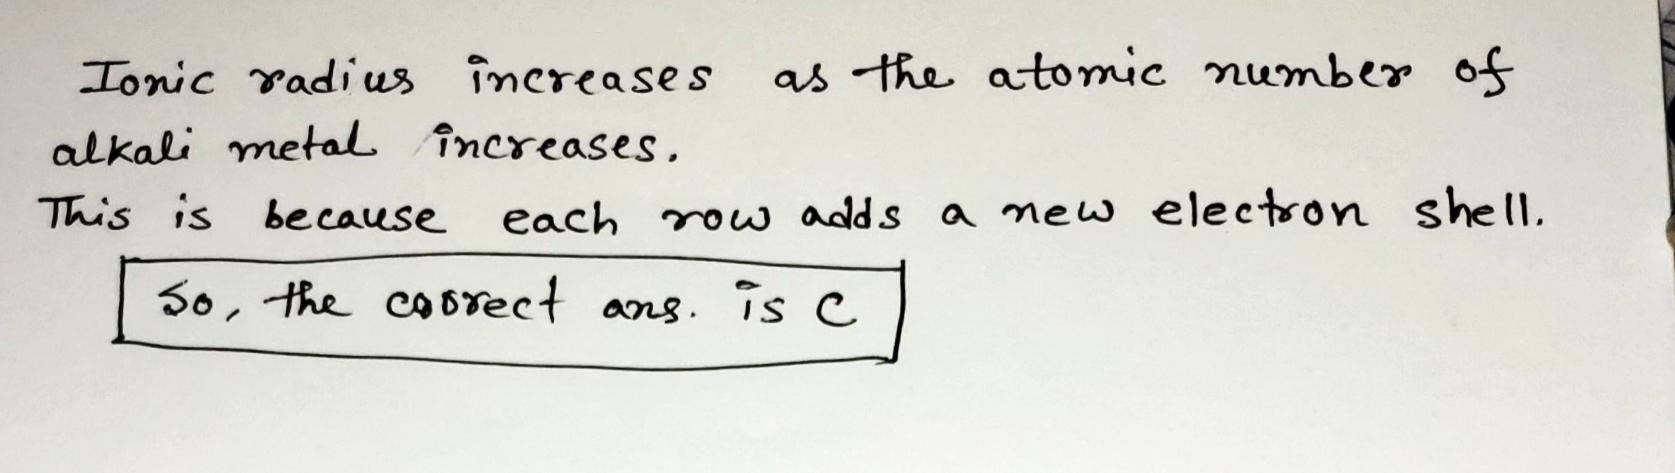 Ionic radius increases as the atomic number of
alkali metal increases.
This is because each row adds a new electron shell.
So, the correct ans. is C